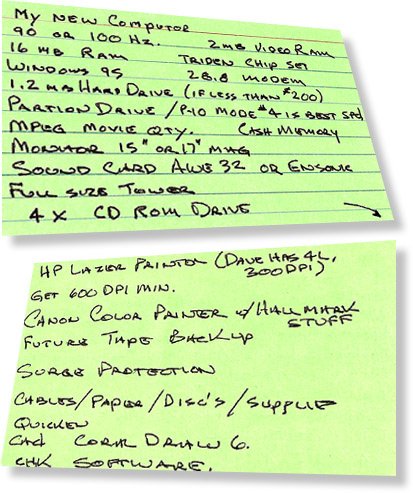 My New Computor
90 or 100 Hz. 2mb Video Ram
16 mb Ram Triden Chip Set
Windows 95 28.8 modem
1.2 mb Hard Drive (if less than $200)
Partion Drive / P-10 mode #4 is best spd
Mpeg Movie Qty. Cash Memory
Monitor 15" or 17" mag
Sound Card Awe 32 or Ensonic
Full size Tower
4x CD Rom Drive
HP Lazier Printer (Dave has 4L,
300 DPI)
Get 600 DPI min.
Canon Color Printer w/ Hallmark
Stuff
Future Tape Backup
Surge Protection
Cables/Paper/Disc's/Supplie
Quicken
Cad Coral Draw 6.
Chk Software.